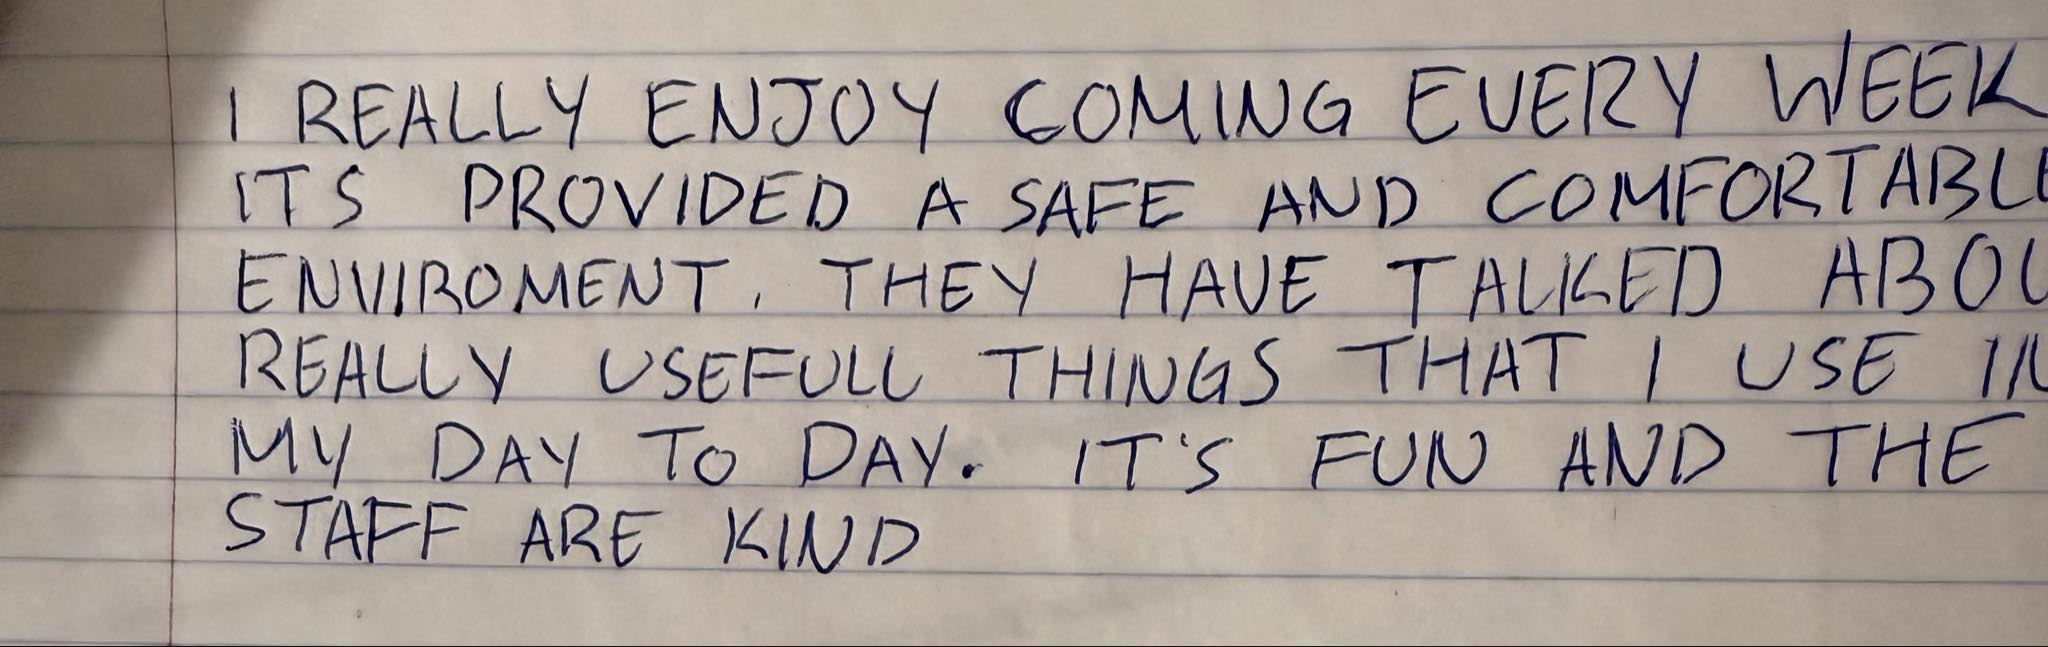 I REALLY ENJOY COMING EVERY WEEK
ITS PROVIDED A SAFE AND COMFORTABLE
ENVIROMENT. THEY HAVE TALKED ABOU
REALLY USEFULL THINGS THAT I USE IN
MY DAY TO DAY. IT'S FUN AND THE
STAFF ARE KIND